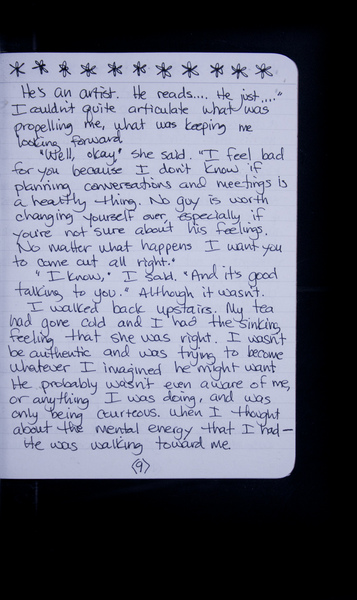 He's an artist. He reads.... He just...."
I couldn't quite articulate what was
propelling me, what was keeping me
looking forward.
"Well, okay," she said. "I feel bad
for you because I don't know if
planning conversations and meetings is
a healthy thing. No guy is worth
changing yourself over, especially if
you're not sure about his feelings.
No matter what happens I want you
to come out all right."
"I know," I said. "And it's good
talking to you." Although it wasn't.
I walked back upstairs. My tea
had gone cold and I had the sinking
feeling that she was right. I wasn't
be authentic and was trying to become
whatever I imagined he might want
He probably wasn't even aware of me,
or anything I was doing, and was
only being courteous. When I thought
about the mental energy that I had—
He was walking toward me.
(9)